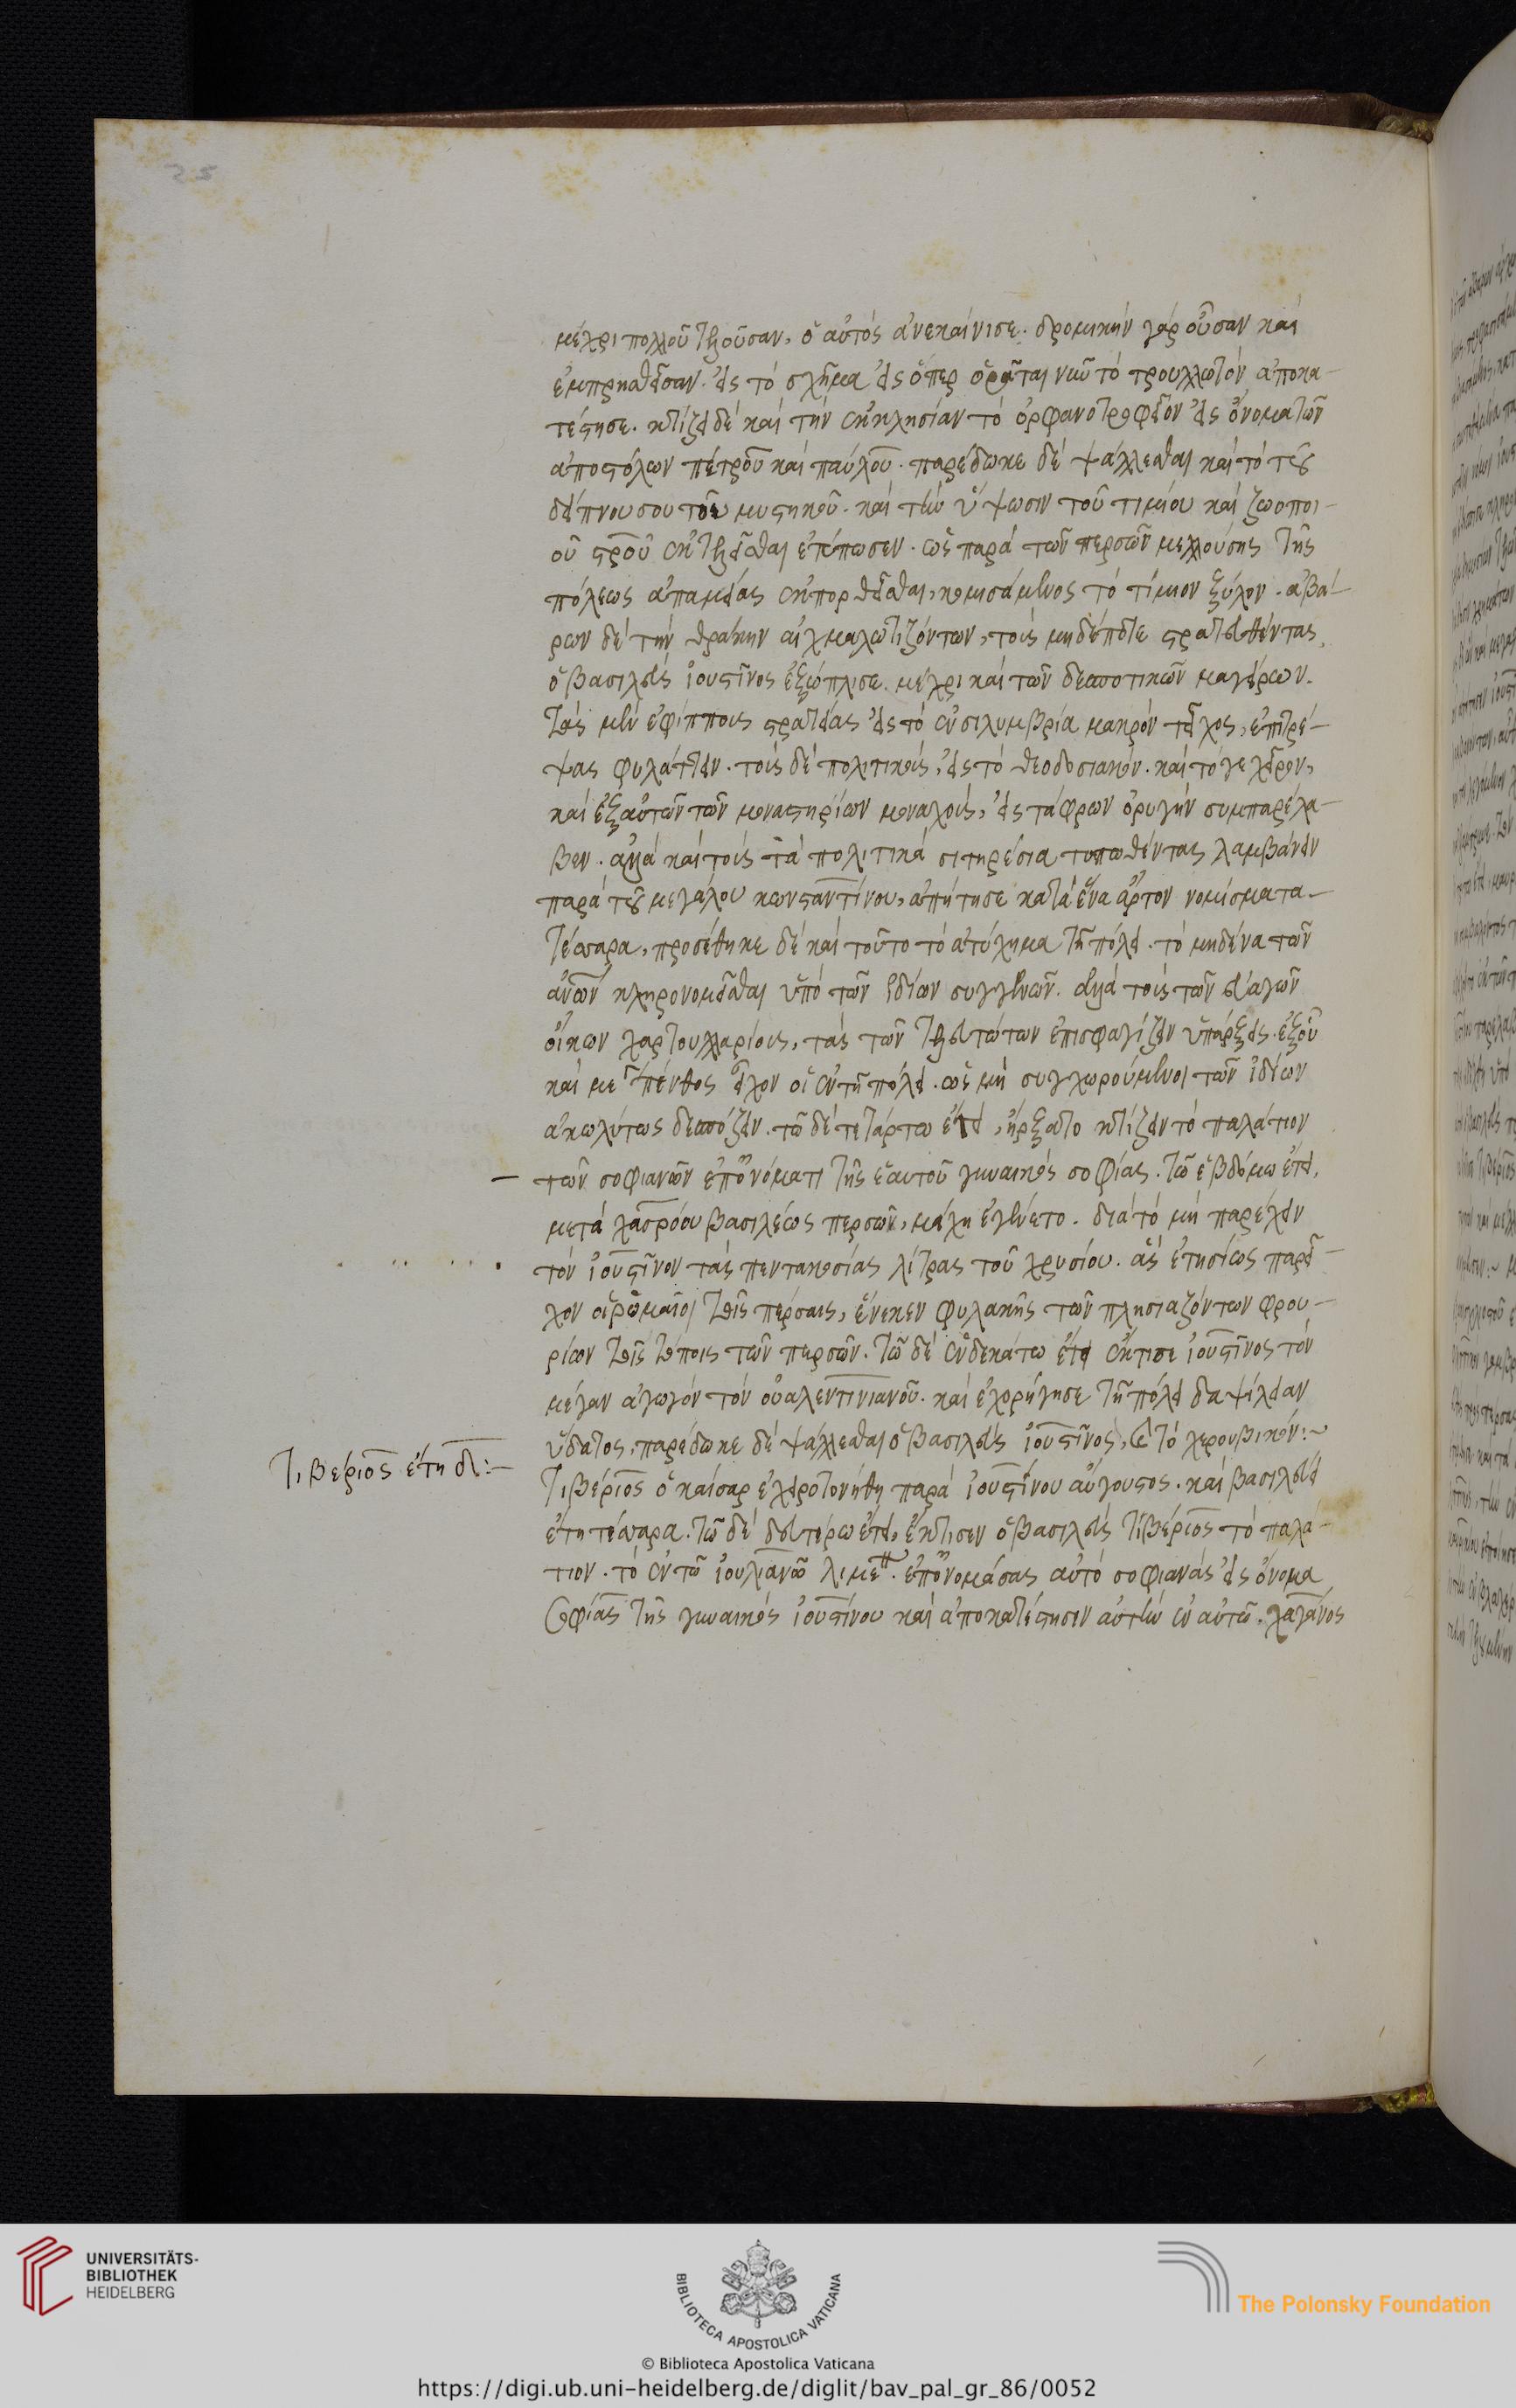 25
μέχρι πολλοῦ πεσοῦσαν, ὁ αὐτὸς ἀνεκαίνισε. δρομικὴν γὰρ οὖσαν καὶ
ἐμπρησθεῖσαν. εἰς τὸ σχῆμα εἰς ὅπερ ὁρᾶται νῦν τὸ τρουλλωτὸν ἀποκα-
τέστησε. κτίζει δὲ καὶ τὴν ἐκκλησίαν τὸ ὀρφανοτροφεῖον εἰς ὄνομα τῶν
ἀποστόλων πέτρου καὶ παύλου. παρέδωκε δὲ ψάλλεσθαι καὶ τὸ τοῦ
δείπνου σου τοῦ μυστικοῦ. καὶ τὴν ὕψωσιν τοῦ τιμίου καὶ ζωοποι-
οῦ σρου ἐκτελεῖσθαι ἐτύπωσεν. ὡς παρὰ τῶν περσῶν μελλούσης τῆς
πόλεως ἀπαμείας ἐκπορθεῖσθαι, κομισάμενος τὸ τίμιον ξύλον. ἀβά-
ρων δὲ τὴν θράκην αἰχμαλωτιζόντων, τοὺς μηδέποτε στρατευθέντας,
ὁ βασιλεὺς ἰουστῖνος ἐξώπλισε. μέχρι καὶ τῶν δεσποτικῶν μαγείρων.
τὰς μὲν ἐφίπποις στρατείας εἰς τὸ ἐν σιλυμβρία μακρὸν τεῖχος, ἐπιτρέ-
ψας φυλάττειν. τοὺς δὲ πολιτικοὺς, εἰς τὸ θεοδοσιακόν. καὶ τό γε χεῖρον,
καὶ ἐξ αὐτῶν τῶν μοναστηρίων μοναχοὺς, εἰς τάφρων ὀρυγὴν συμπαρέλα-
βεν. ἀλλὰ καὶ τοὺς τὰ πολιτικὰ σιτηρέσια τυπωθέντας λαμβάνειν
παρὰ τοῦ μεγάλου κωνσταντίνου, ἀπῄτησε κατὰ ἕνα ἄρτον νομίσματα-
τέσσαρα, προσέθηκε δὲ καὶ τοῦτο τὸ ἀτύχημα τῇ πόλει. τὸ μηδένα τῶν
ἀνων κληρονομεῖσθαι ὑπὸ τῶν ἰδίων συγγενῶν. ἀλλὰ τοὺς τῶν εὐαγῶν
οἴκων χαρτουλλαρίους, τὰς τῶν τελευτώτων ἐπισφαγίζειν ὑπάρξεις. ἐξ οὗ
καὶ με πένθος εἶχον οἱ ἐν τῇ πόλει. ὡς μὴ συγχωρούμενοι τῶν ἰδίων
ἀκωλύτως δεσπόζειν. τῶ δὲ τετάρτω ἔτει, ἤρξατο κτίζειν τὸ παλάτιον
- τῶν σοφιανῶν ἐπ' ὀνόματι τῆς ἑαυτοῦ γυναικὸς σοφίας. τῶ ἑβδόμω ἔτει,
μετὰ χασρόου βασιλέως περσῶν, μάχη ἐγένετο. διὰ τὸ μὴ παρέχειν
τὸν ἰουστῖνον τὰς πεντακοσίας λίτρας τοῦ χρυσίου. ἃς ἐτησίως παρεῖ-
χον οἱ ῥωμαῖοι τοῖς πέρσαις, ἕνεκεν φυλακῆς τῶν πλησιαζόντων φρου-
ρίων τοῖς τόποις τῶν περσῶν. τῶ δὲ ἑνδεκάτω ἔτει ἔκτισε ἰουστῖνος τὸν
μέγαν ἀγωγὸν τὸν οὐαλεντινιανοῦ. καὶ ἐχορήγησε τῇ πόλει δαψίλειαν
ὕδατος, παρέδωκε δὲ ψάλλεσθαι ὁ βασιλεὺς ἰουστῖνος, καὶ τὸ χερουβικόν:~
Τιβέριος ἔτη δ:-
Τιβέριος ὁ καίσαρ ἐχειροτονήθη παρὰ ἰουστίνου αὔγουστος. καὶ βασιλεύει
ἔτη τέσσαρα. τῶ δὲ δευτέρω ἔτει, ἔκτισεν ὁ βασιλεὺς τιβέριος τὸ παλά-
τιον. τὸ ἐν τῶ ἰουλιανῶ λιμε. ἐπονομάσας αὐτὸ σοφιανὰς εἰς ὄνομα
σοφίας τῆς γυναικὸς ἰουστίνου καὶ ἀποκατέστησεν αὐτὴν ἐν αὐτῶ. χαγάνος
UNIVERSITÄTS-
BIBLIOTHEK
HEIDELBERG
BIBLIOTECA APOSTOLICA VATICANA
The Polonsky Foundation
© Biblioteca Apostolica Vaticana
https://digi.ub.uni-heidelberg.de/diglit/bav_pal_gr_86/0052